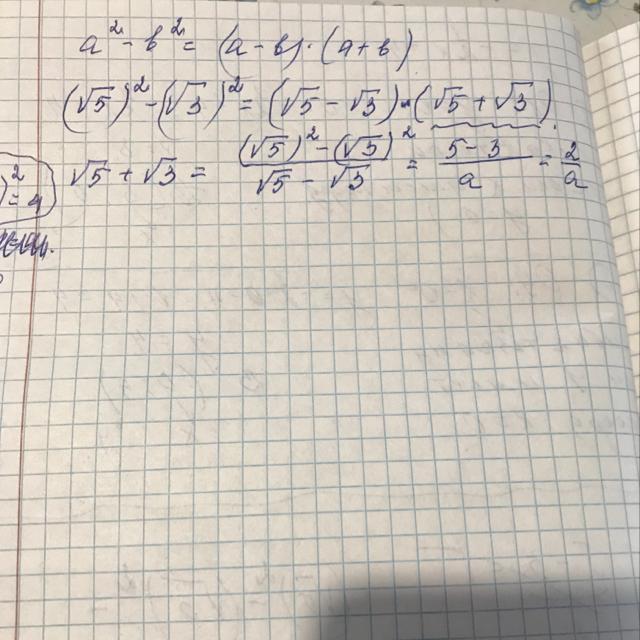 a² - b² = (a - b) · (a + b)
(√5)² - (√3)² = (√5 - √3) · (√5 + √3).
√5 + √3 = \frac{(√5)² - (√3)²}{√5 - √3} = \frac{5 - 3}{a} = \frac{2}{a}
)² = a